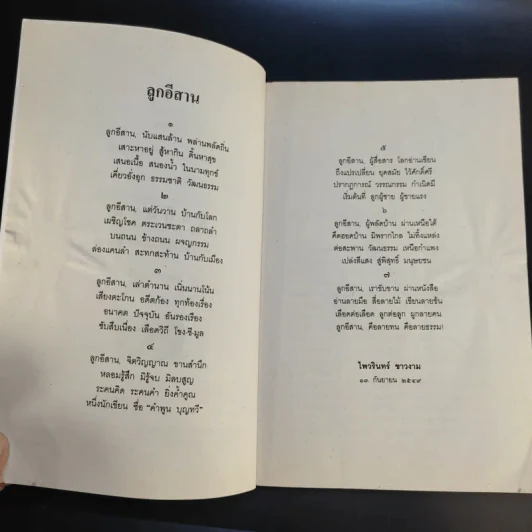 ลูกอีสาน
๑
ลูกอีสาน, นับแสนล้าน พล่านพลัดถิ่น
เสาะหาอยู่ สู้หากิน ดิ้นหาสุข
เสนอเนื้อ สนองน้ำ ในนามทุกข์
เคี่ยวยั่งอุก ธรรมชาติ วัฒนธรรม
๒
ลูกอีสาน, แต่วันวาน บ้านกับโลก
เผชิญโชค ตระเวนชะตา ถลาถลำ
บนถนน ข้างถนน ผจญกรรม
ล่องแคนลำ สะทกสะท้าน บ้านกับเมือง
๓
ลูกอีสาน, เล่าตำนาน เนิ่นนานโน้น
เสียงตะโกน อดีตก้อง ทุกท้องเรื่อง
อนาคต ปัจจุบัน อันรองเรือง
ขับสืบเนื่อง เลือดวิถี โขง-ชี-มูล
๔
ลูกอีสาน, จิตวิญญาณ ขานสำนึก
หลอมรู้สึก มิรู้จบ มิลบสูญ
ระคนคิด ระคนคำ ยิ่งค้ำคูณ
หนึ่งนักเขียน ชื่อ "คำพูน บุญทวี"
๕
ลูกอีสาน, ผู้สื่อสาร โลกอ่านเขียน
ถึงแปรเปลี่ยน ยุคสมัย ไว้ศักดิ์ศรี
ปรากฏการณ์ วรรณกรรม กำเนิดมี
เริ่มต้นที่ ลูกผู้ชาย ผู้ชายแรง
๖
ลูกอีสาน, ผู้พลัดบ้าน ผ่านเหนือใต้
คืดฮอดบ้าน มิพรากไกล ไม่ทิ้งแหล่ง
ต่อสะพาน วัฒนธรรม เหนือกำแพง
เปล่งสีแสง สู่พิสุทธิ์ มนุษยชน
๗
ลูกอีสาน, เราขับขาน ผ่านหนังสือ
อ่านลายมือ สื่อลายไม้ เขียนลายขั้น
เลือดต่อเลือด ลูกต่อลูก ผูกลายคน
ลูกอีสาน, คือลายทน คือลายธรรม!
ไพวรินทร์ ขาวงาม
๑๓ กันยายน ๒๕๔๙